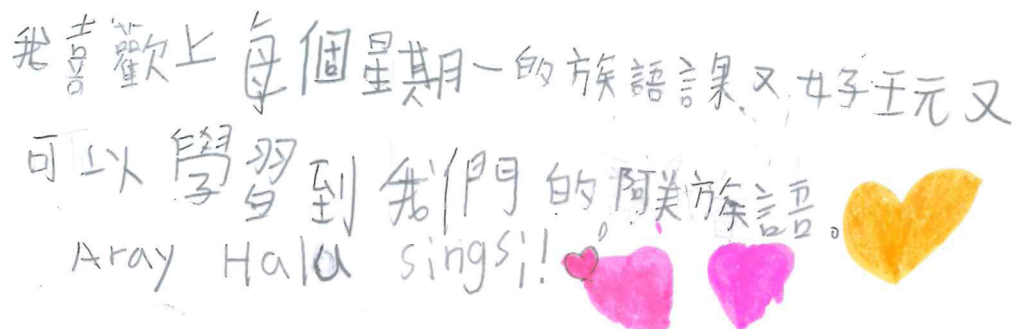 我喜歡上每個星期一的族語課又好玩又
可以學習到我們的阿美族語。
Aray Halu singsi!!